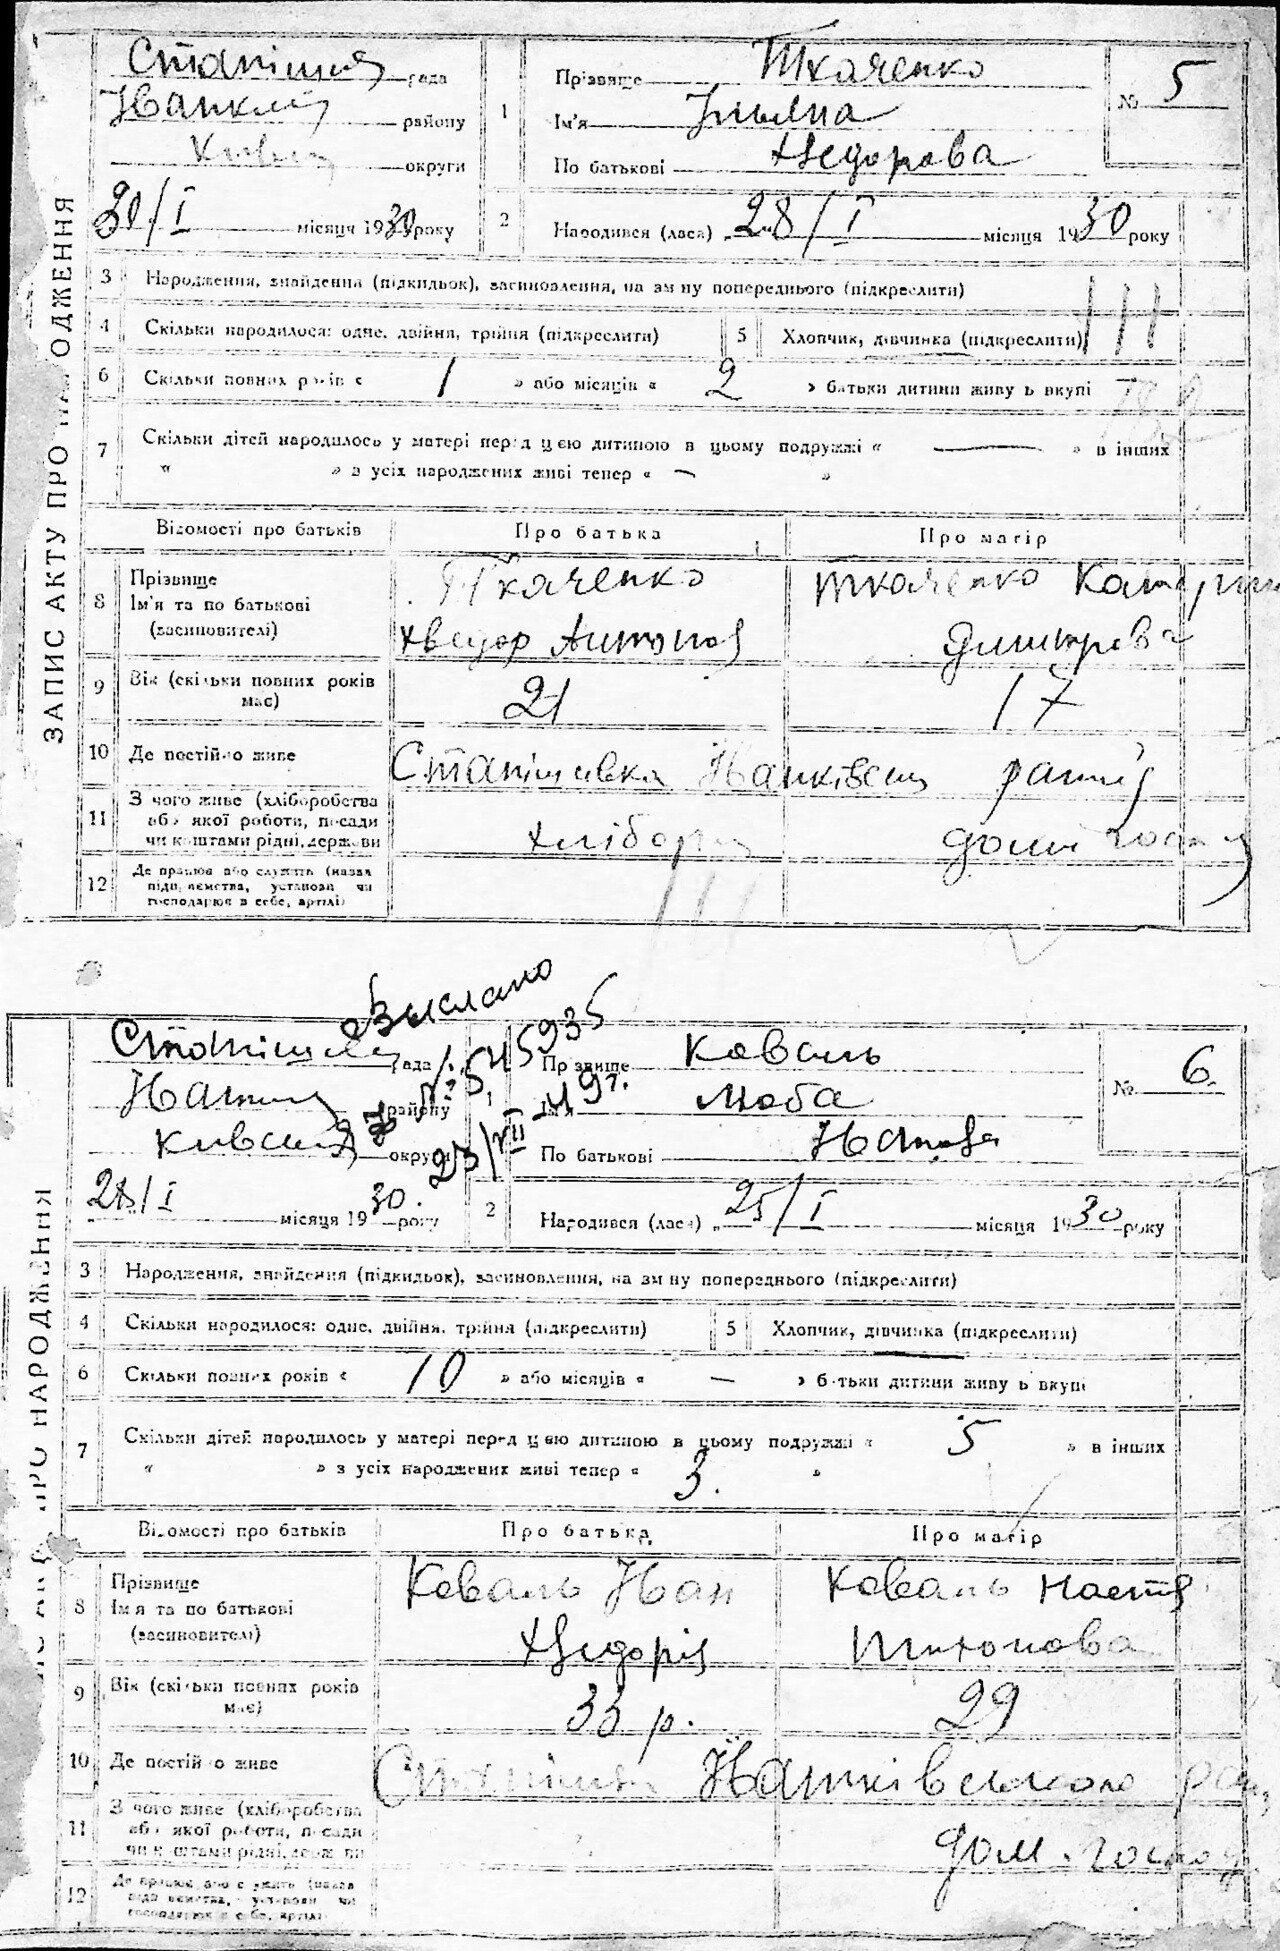 ЗАПИС АКТУ ПРО НАРОДЖЕННЯ
рада
району
округи
30/I місяця 1930 року
1
Прізвище Ткаченко
Ім'я Ульяна
По батькові Хведорова
№ 5
2 Народився (лась) „28/I місяця 1930 року
3 Народження, знайдення (підкидьок), засиновлення, на зміну попереднього (підкреслити)
4 Скільки народилося: одне, двійня, трійня (підкреслити)
5 Хлопчик, дівчинка (підкреслити)
6 Скільки повних років « 1 » або місяців « 2 » батьки дитини живуть вкупі
7 Скільки дітей народилось у матері перед цією дитиною в цьому подружжі « — » в інших
“ » з усіх народжених живі тепер « — »
Відомості про батьків
Про батька
Про матір
8 Прізвище
Ім'я та по батькові
(засиновителі)
Ткаченко
Хведор Антонов
Ткаченко
9 Вік (скільки повних років має)
21
17
10 Де постійно живе
Станішивка
11 З чого живе (хліборобства
або якої роботи, посади
чи коштами рідні, держави
12 Де працює або служить (назва
підприємства, установи чи
господарює в себе, артілі)
ПРО НАРОДЖЕННЯ
Вислано
№ 545935
23/VII 49 г.
рада
району
округи
28/I місяця 1930. року
1
Прізвище Коваль
Ім'я Люба
По батькові Иванова
№ 6.
2 Народився (лась) „25/I місяця 1930 року
3 Народження, знайдення (підкидьок), засиновлення, на зміну попереднього (підкреслити)
4 Скільки народилося: одне, двійня, трійня (підкреслити)
5 Хлопчик, дівчинка (підкреслити)
6 Скільки повних років « 10 » або місяців « — » батьки дитини живуть вкупі
7 Скільки дітей народилось у матері перед цією дитиною в цьому подружжі « 5 » в інших
“ » з усіх народжених живі тепер « 3. »
Відомості про батьків
Про батька
Про матір
8 Прізвище
Ім'я та по батькові
(засиновителі)
Коваль Иван
Хведорів
Коваль Настя
9 Вік (скільки повних років має)
33 р.
29
10 Де постійно живе
11 З чого живе (хліборобства
або якої роботи, посади
чи коштами рідні, держави
дом. господ.
12 Де працює або служить (назва
підприємства, установи чи
господарює в себе, артілі)